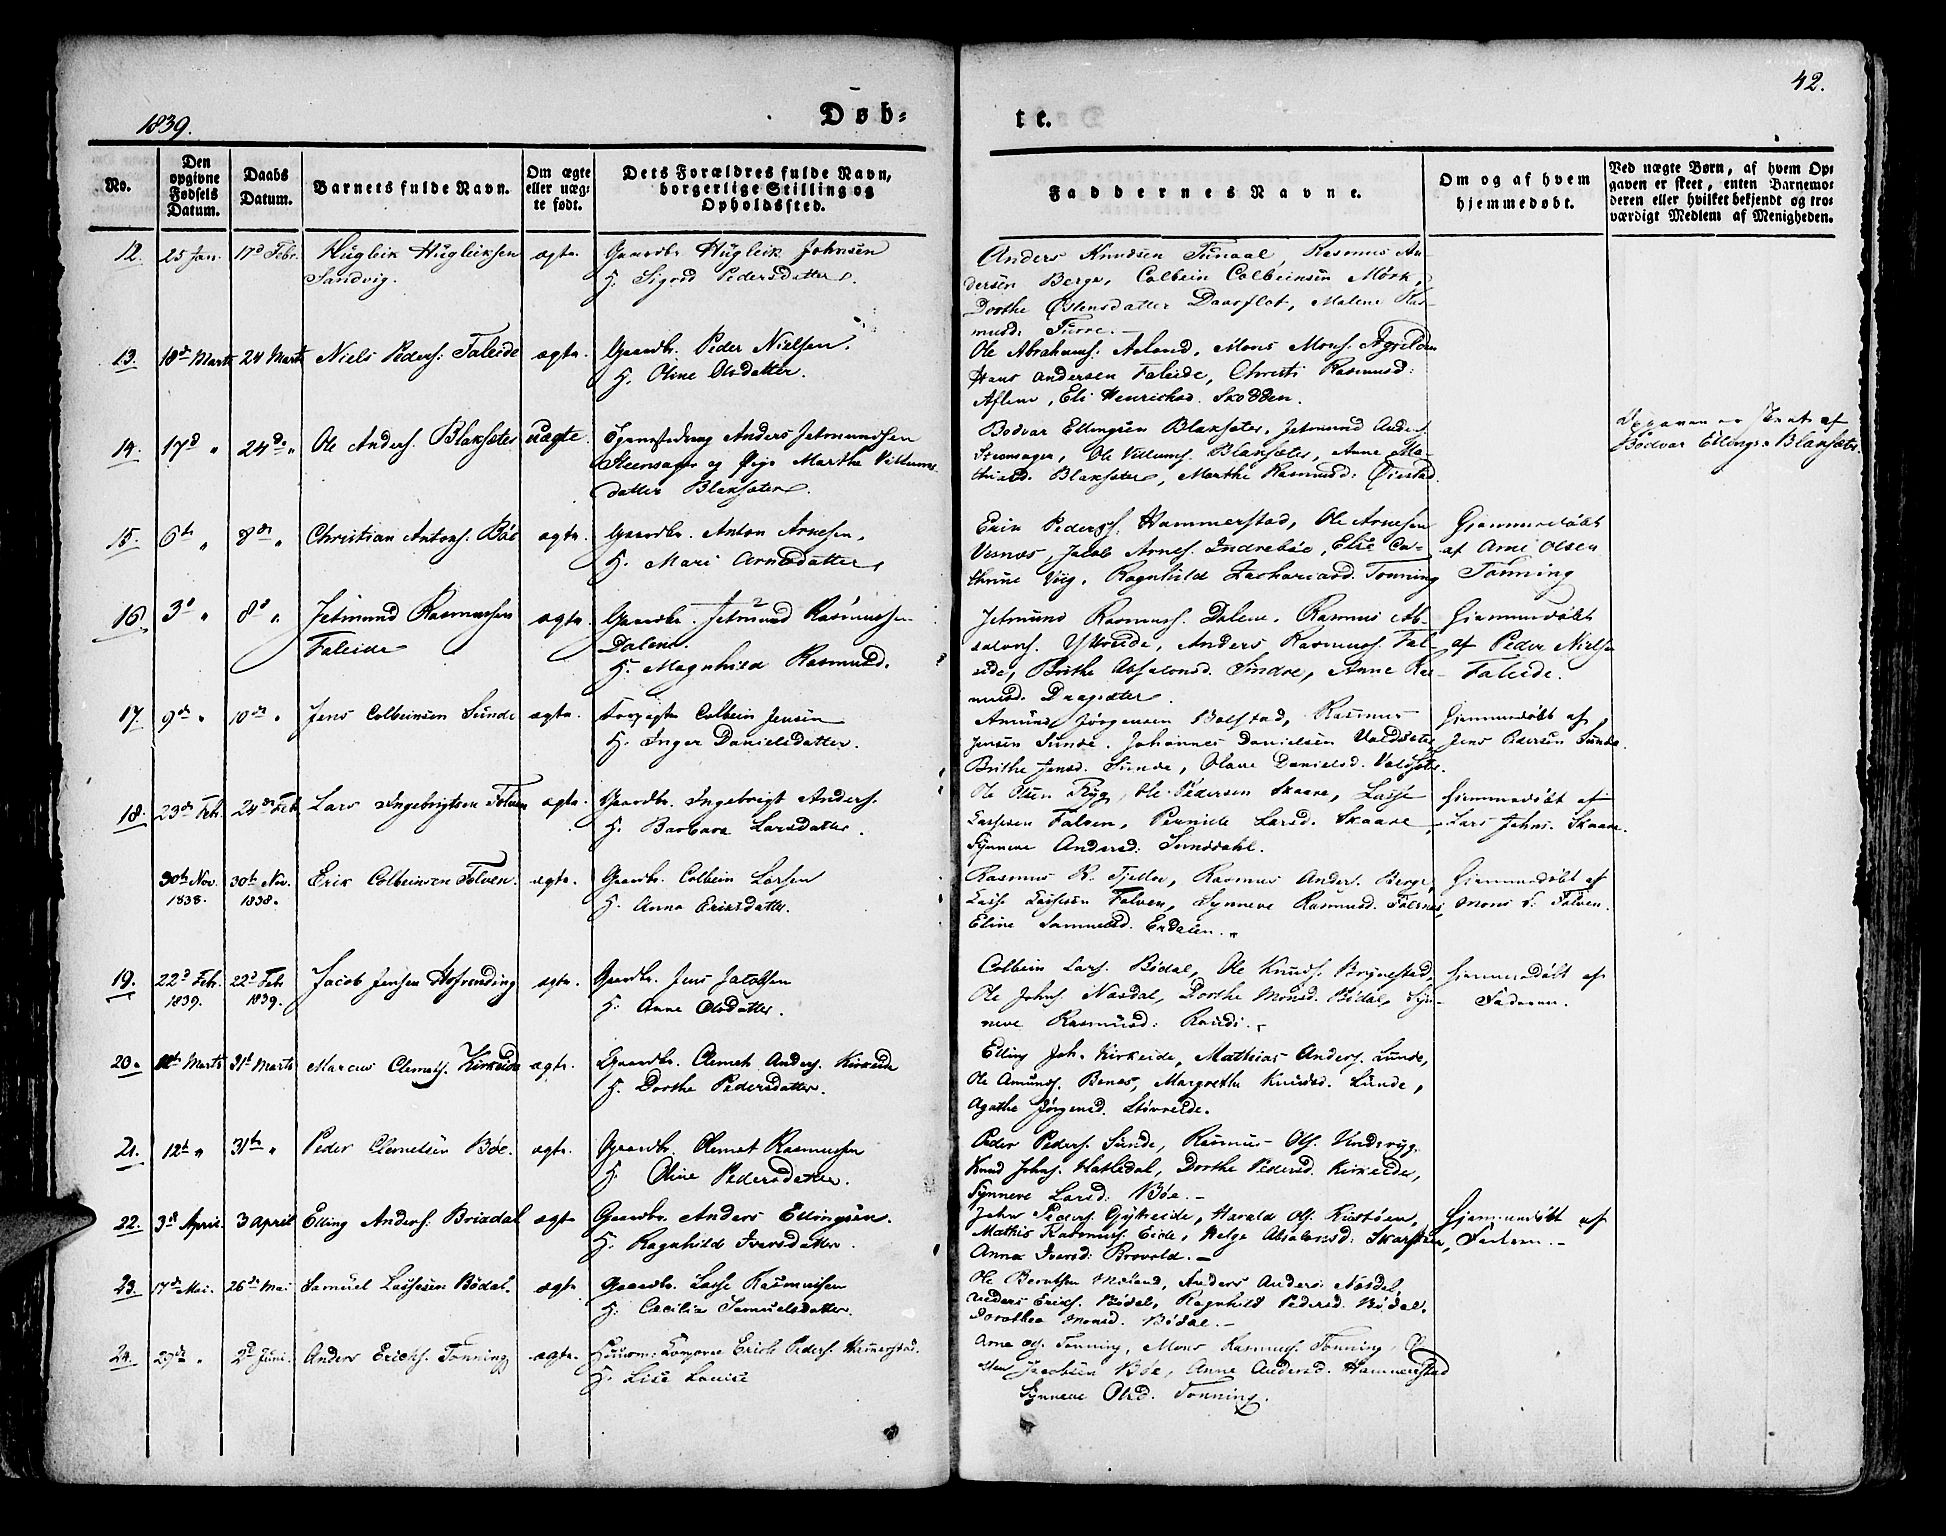 42.
1839.
Døb=
te.
No.
Den opgivne Fødsels Datum.
Daabs Datum.
Barnets fulde Navn.
Om ægte eller uæg= te født.
Dets Forældres fulde Navn, borgerlige Stilling og Opholdssted.
Faddernes Navne.
Om og af hvem hjemmedøbt.
Ved uægte Børn, af hvem Op= gaven er skeet, enten Barnemo= deren eller hvilket bekjendt og tro= værdigt Medlem af Menigheden.
12. 25 Jan. 17d Febr. Hugleik Hugleiksen ægte. Gaardbr. Hugleik Johnsen
Sandvig. H. Sigrid Pedersdatter.
Anders Knudsen Tunaal, Rasmus An-
dersen Berge, Colbein Colbeinsen Mørk,
Dorthe Østensdatter Daarflot, Malene Ras-
musd: Turre.
13. 18de Marts 24 Marts Niels Peders: Faleide ægte. Gaardbr. Peder Nielsen.
H. Oline Olsdatter.
Ole Abrahams: Aaland, Mons Mons:
Hans Andersen Faleide, Christi Rasmusd:
Aflem, Eli Henriksd. Skodden.
14. 17d " 24de " Ole Anders. Blaksæter uægte. Anders Jetmundsen
Steensager og Pige Marthe Villums-
datter Blaksæter.
Bodvar Ellingsen Blaksæter, Jetmund Anders
Steensager, Ole Villums. Blaksæter, Anne Ma-
thiasd. Blaksæter, Marthe Rasmusd: Ørestad.
Opgaven er skeet af
Bodvar Ellings: Blaksæter.
15. 6te " 8de " Christian Antons. Bøe ægte. Gaardbr. Anton Arnesen,
H. Mari Arnesdatter,
Erik Peders. Hammerstad, Ole Arnesen
Vernæs, Jacob Arnes. Indrebøe, Elise Ca-
thrine Viig, Ragnhild Zachariasd. Tonning
Hjemmedøbt
af Arne Olsen
Tonning
16. 3d " 8d " Jetmund Rasmussen ægte. Gaardbr. Jetmund Rasmussen
Faleide Dalene.
H. Magnhild Rasmusd.
Jetmund Rasmuss. Dalene, Rasmus Ab-
salons. Ystreide, Anders Rasmuss. Fal-
eide, Brithe Absalonsd. Sindre, Anne Ras-
musd. Daagsæter.
Hjemmedøbt
af Peder Nielsen
Faleide.
17. 9de " 10de " Jens Colbeinsen Sunde ægte. Forpagter Colbein Jensen
H. Inger Danielsdatter.
Amund Jørgensen Bolstad, Rasmus
Jensen Sunde. Johannes Danielsen Valdsæter,
Brithe Jensd. Sunde, Olave Danielsd. Valdsæter.
Hjemmedøbt af
Jens Pedersen Sunde.
18. 23de Feb. 24de Feb. Lars Ingebrigtsen Folven ægte. Gaardbr. Ingebrigt Anders.
H. Barbara Larsdatter.
Ole Olsen Ryg, Ole Pedersen Skaare, Lasse
Lassesen Folven, Pernille Larsd. Skaare,
Synneve Andersd: Sunddahl.
Hjemmedøbt af
Lars Johns. Skaare.
30te Nov. 1838. 30te Nov. 1838. Erik Colbeinsen Folven. ægte. Gaardbr. Colbein Larsen
H. Anna Eriksdatter.
Rasmus R. Tjelle, Rasmus Anders. Berge,
Lasse Lassesen Folven, Synneve Rasmusd. Folnes,
Eline Samuelsd. Erdalen.
Hjemmedøbt af
Mons S. Folven.
19. 22d Feb. 1839. 22d Feb 1839. Jacob Jensen ægte. Gaardbr. Jens Jacobsen
H. Anne Olsdatter.
Colbein Lars. Bødal, Ole Knuds. Brynestad,
Ole Johns. Nasdal, Dorthe Monsd. Bødal, Syn-
neve Rasmusd: Raudi.
Hjemmedøbt af
Faderen.
20. Marts 31t Marts Marcus Clemets. Kirkeide ægte. Gaardbr. Clemet Anders. Kirkeide
H. Dorthe Pedersdatter.
Elling Joh. Kirkeide, Mathias Anders. Lunde,
Ole Amunds. Benes, Margrethe Knudsd. Lunde,
Agathe Jørgensd. Støvreide.
21. 12t " 31te " Peder Clemetsen Bøe. ægte. Gaardbr. Clemet Rasmussen
H. Oline Pedersdatter.
Peder Peders. Sunde, Rasmus Ols.
Knud Johns. Hatledal, Dorthe Pedersd. Kirkeide,
Synneve Larsd: Bøe.
22. 3d April. 3 April Elling Anders: Brixdal ægte Gaardbr. Anders Ellingsen.
H. Ragnhild Iversdatter.
John Peders. Gytreide, Harald Ols.
Mathis Rasmuss. Eide, Helge Absalonsd: Skarsteen,
Anna Iversd: Brevold.
Hjemmedøbt af
Faderen.
23. 17de Mai. 26de Mai Samuel Lassesen Bødal. ægte. Gaardbr. Lasse Rasmussen
H. Cecilie Samuelsdatter.
Ole Berntsen, Anders Anders: Nasdal,
Anders Eriks. Bødal, Ragnhild Pedersd. Bødal.
Dorothea Monsd. Bødal.
24. 29de " 2d Juni. Anders Ericks. Tonning ægte. Erick Peders. Hammerstad.
H. Lise Lovise
Arne Ols. Tonning, Mons Rasmuss. Tonning,
Jacobsen Bøe, Anne Andersd. Hammerstad
Synneve Olsd. Tonning.